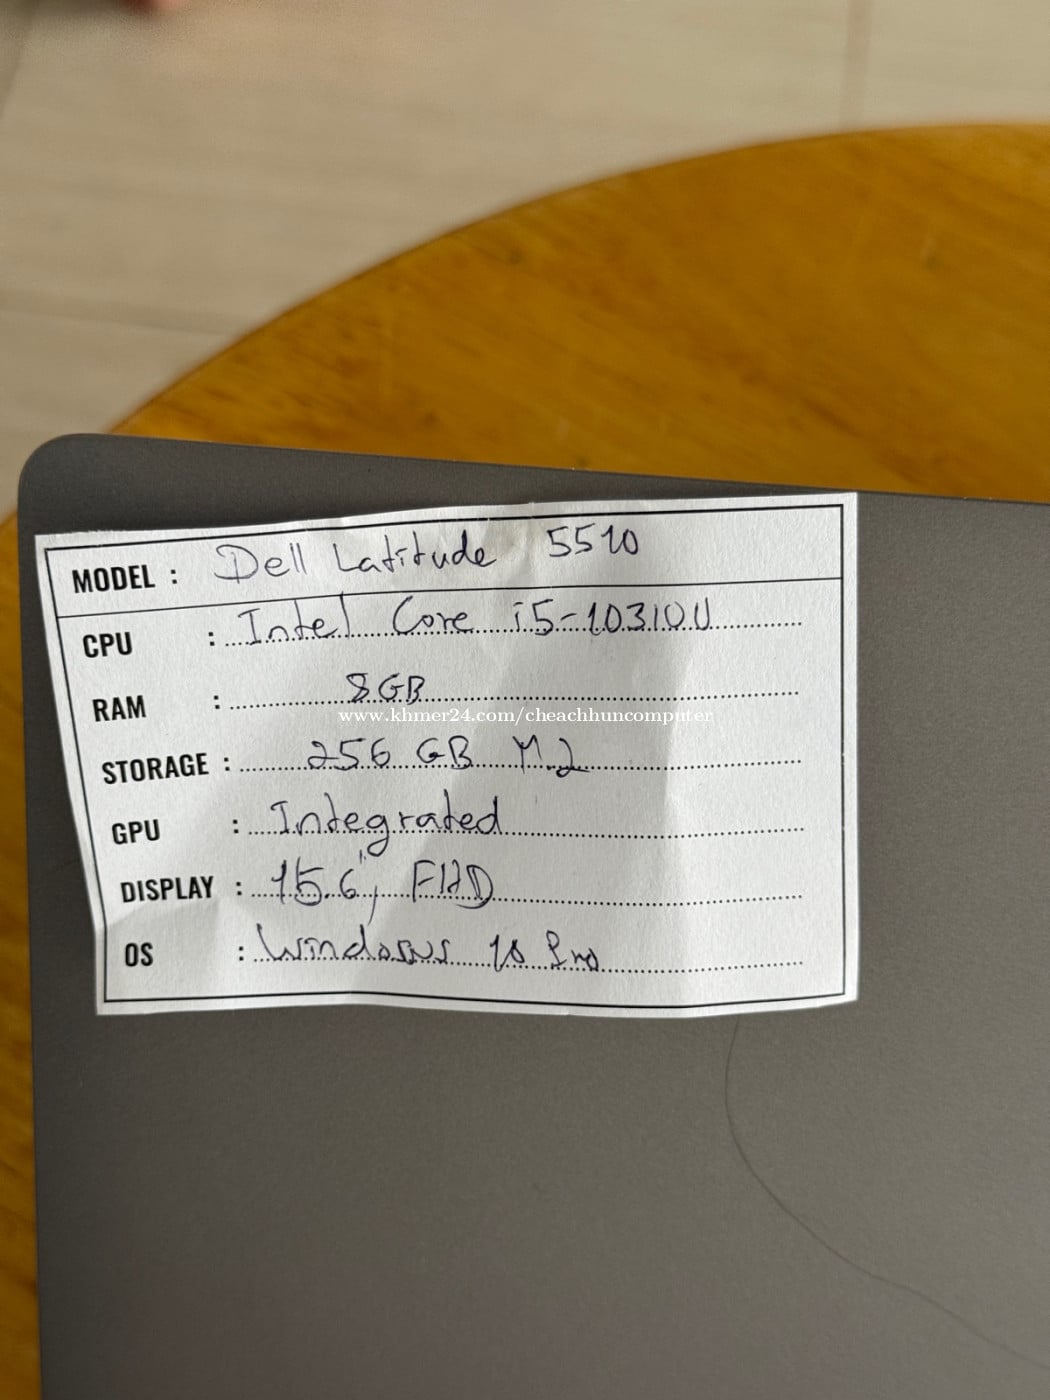 MODEL : Dell Latitude 5510
CPU : Intel Core i5-10310U
RAM : 8GB
www.khmer24.com/cheachhuncomputer
STORAGE : 256 GB M.2
GPU : Integrated
DISPLAY : 15.6", FHD
OS : Windows 10 Pro